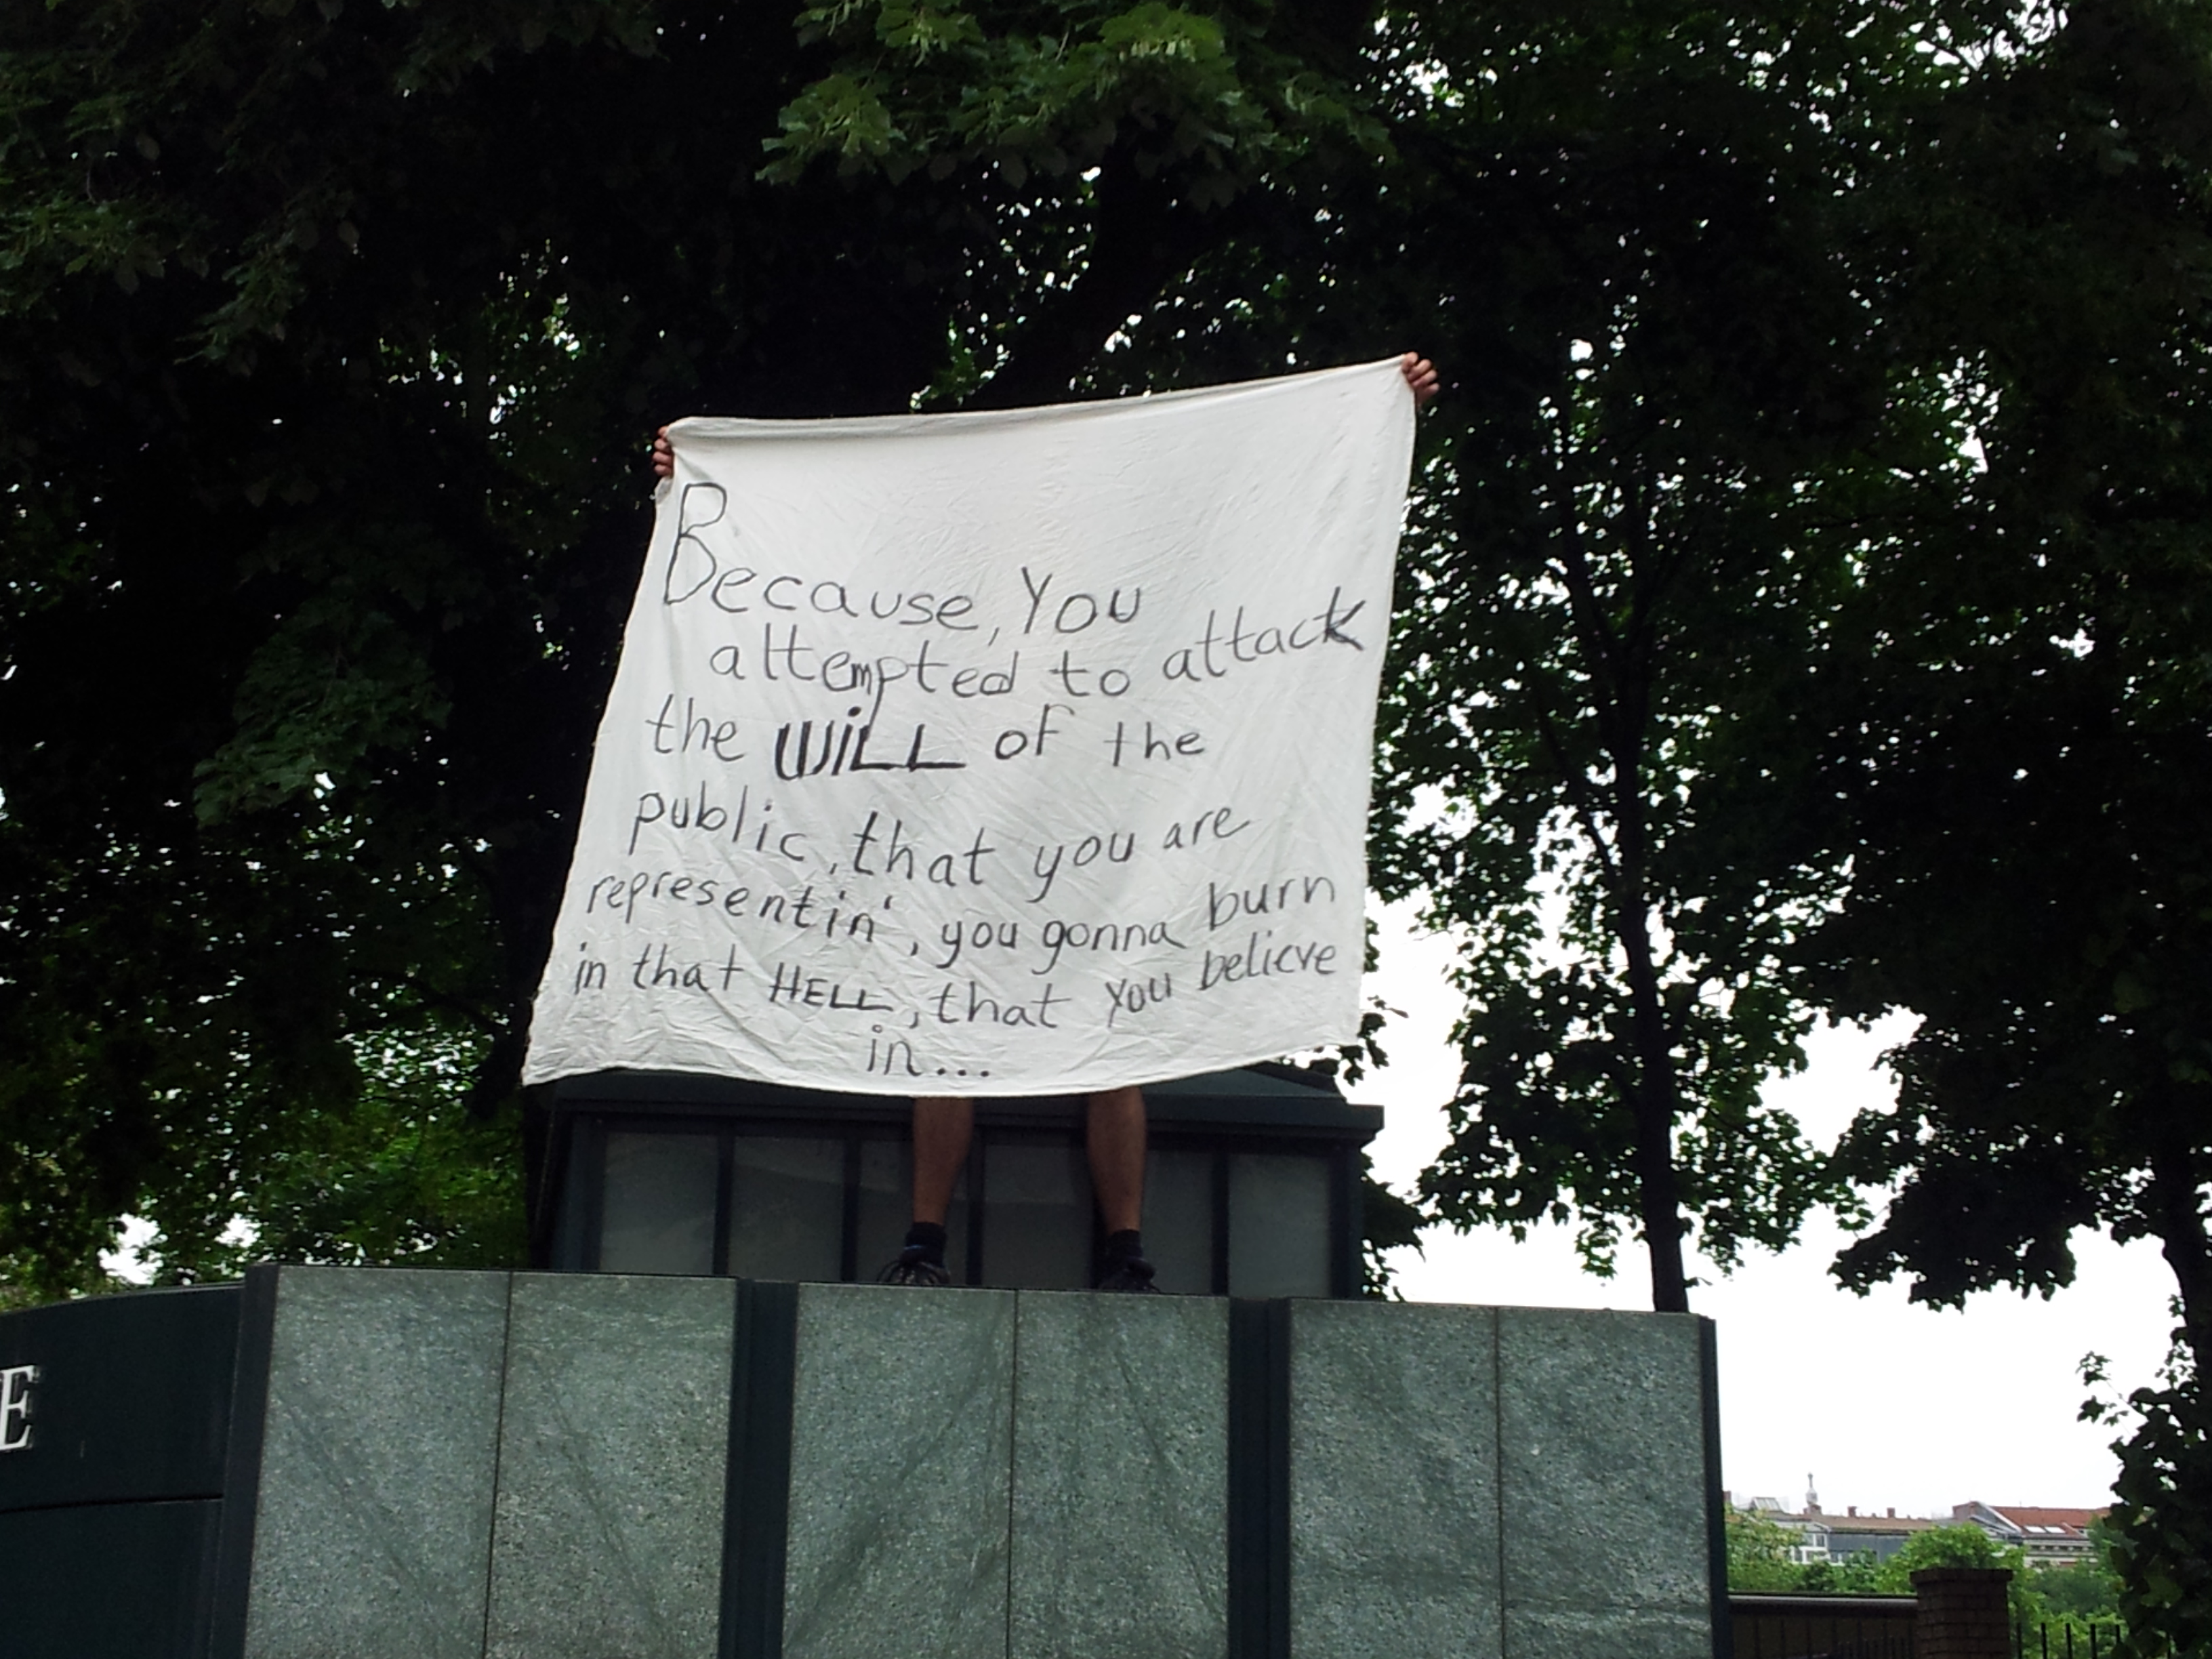 Because, You
attempted to attack
the WiLL of the
public, that you are
representin', you gonna burn
in that HELL, that you believe
in...
E